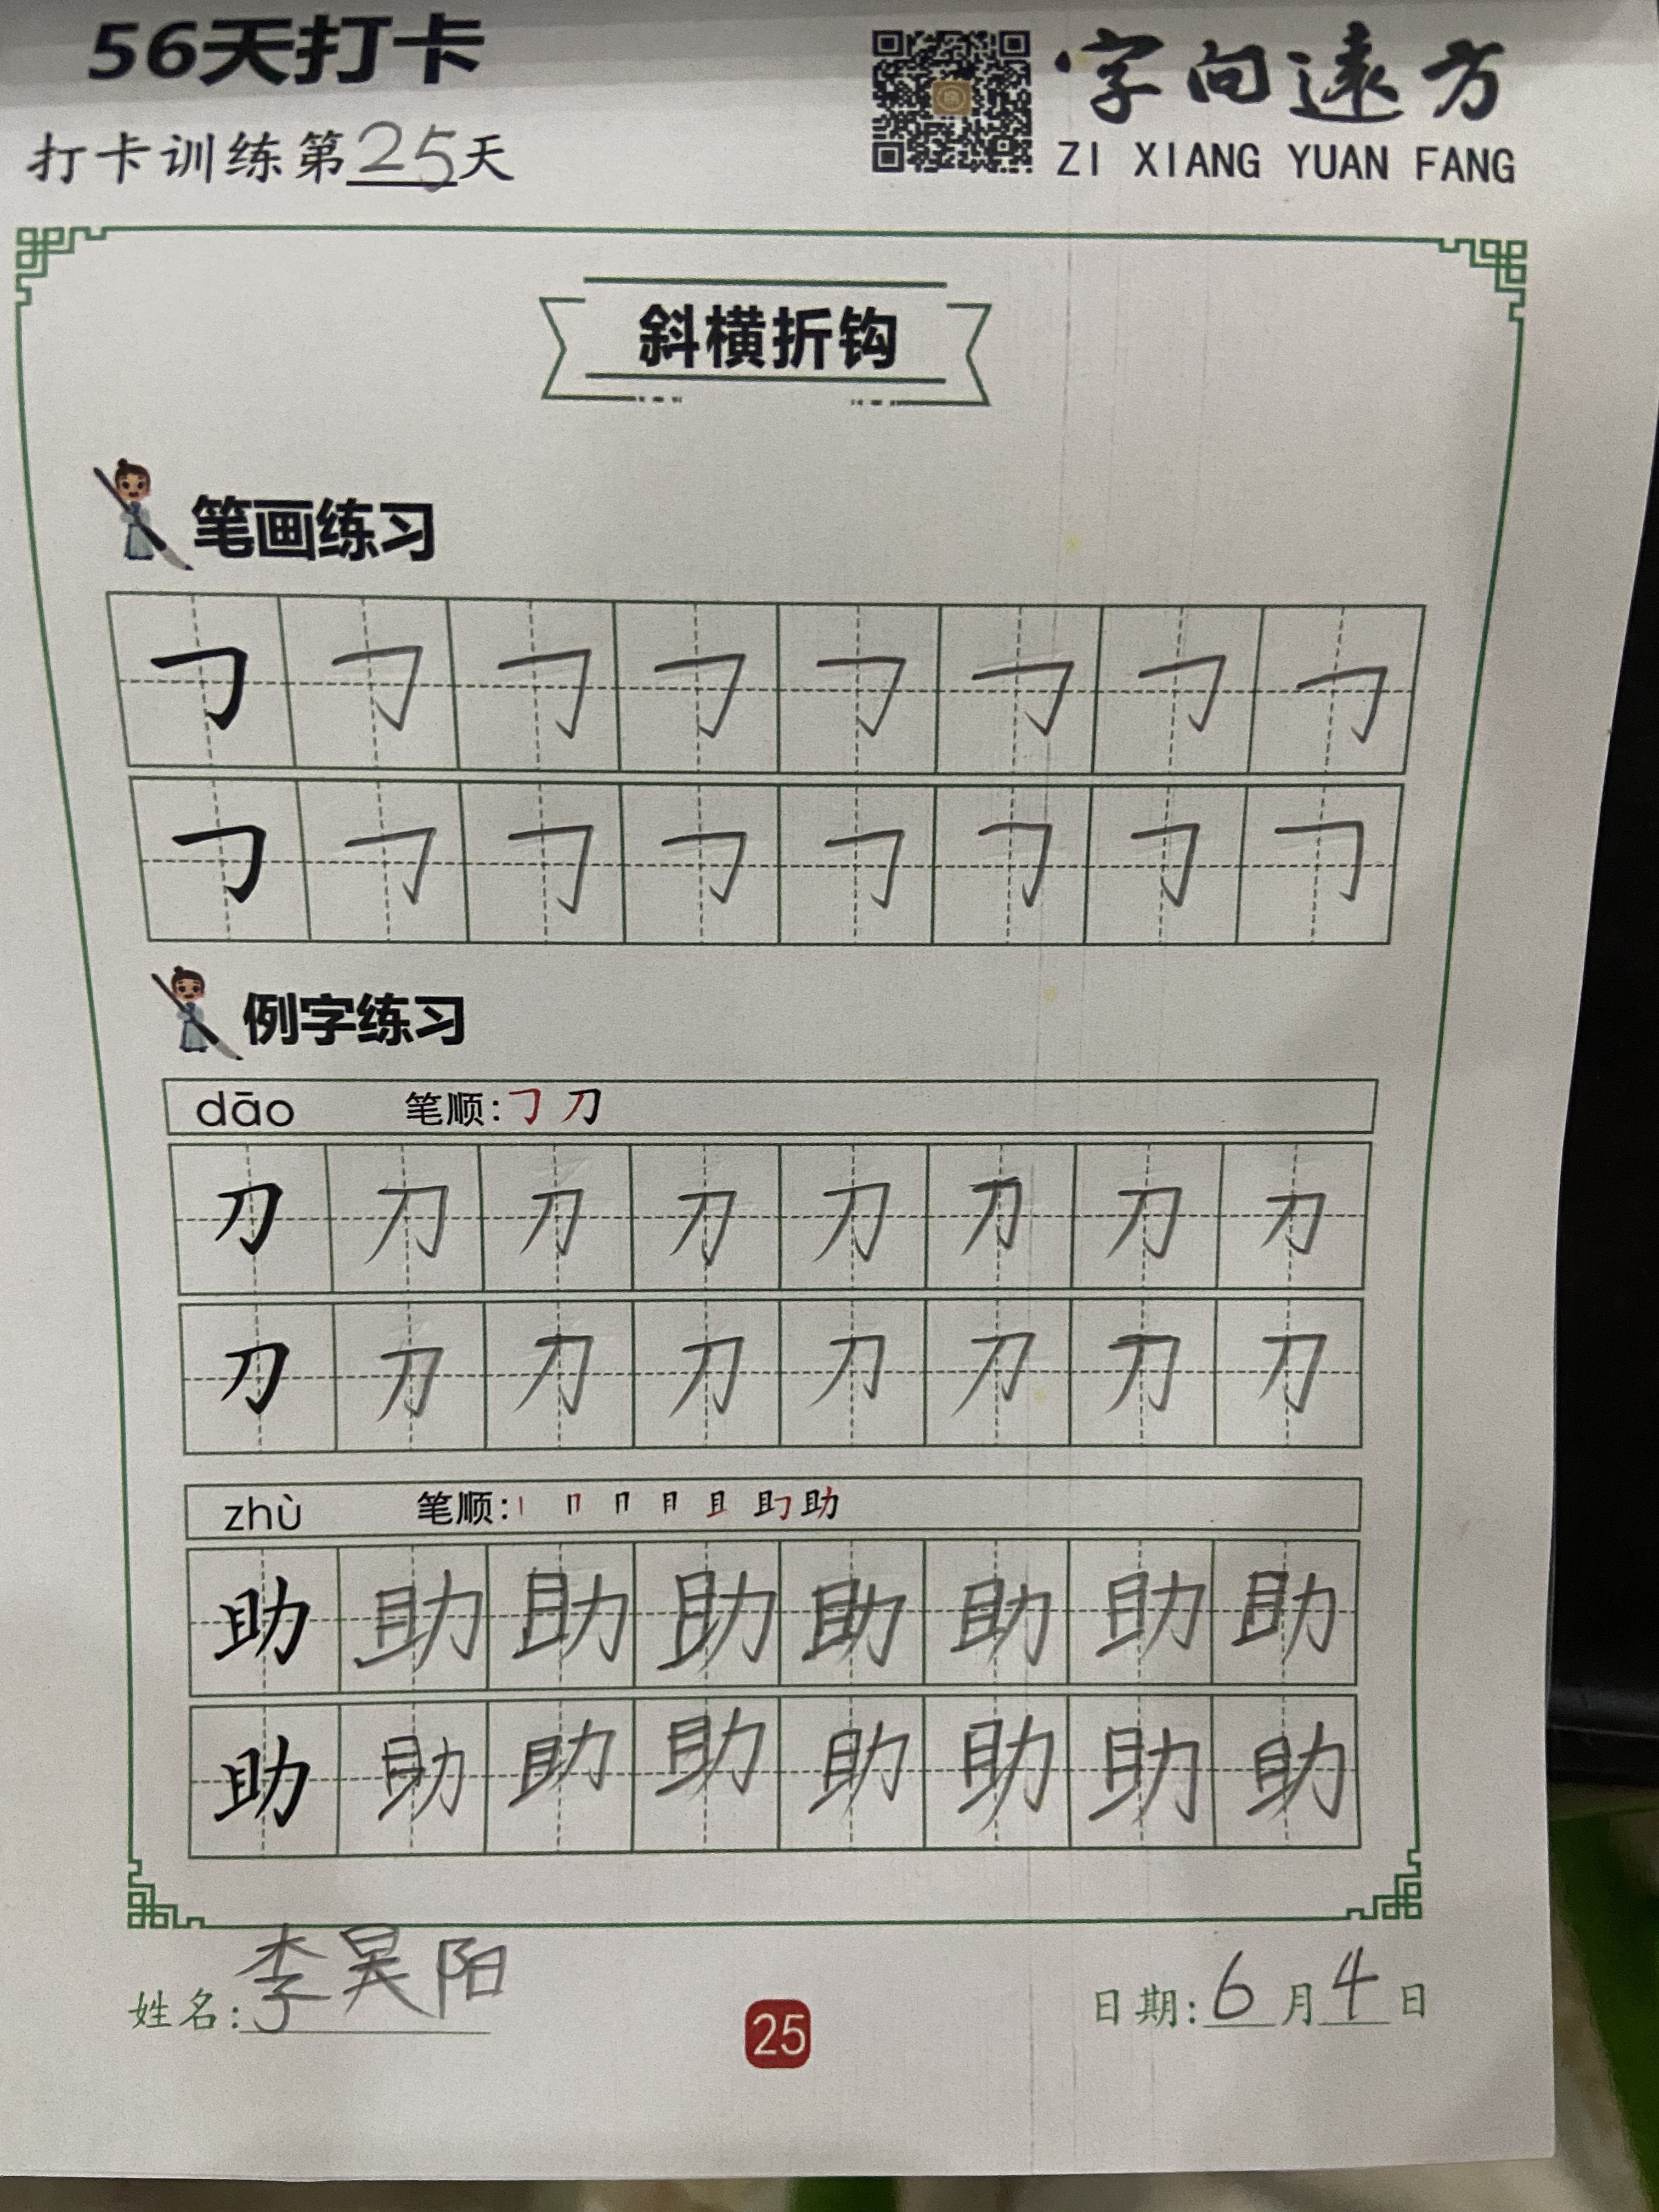 56天打卡
字向遠方
打卡训练第25天
ZI XIANG YUAN FANG
斜横折钩
笔画练习
㇆ ㇆ ㇆ ㇆ ㇆ ㇆ ㇆ ㇆
㇆ ㇆ ㇆ ㇆ ㇆ ㇆ ㇆ ㇆
例字练习
dāo 笔顺:㇆ 刀
刀 刀 刀 刀 刀 刀 刀 刀
刀 刀 刀 刀 刀 刀 刀 刀
zhù 笔顺:丨 冂 冂 月 且 助
助 助 助 助 助 助 助 助
助 助 助 助 助 助 助 助
姓名:李昊阳
25
日期:6月4日